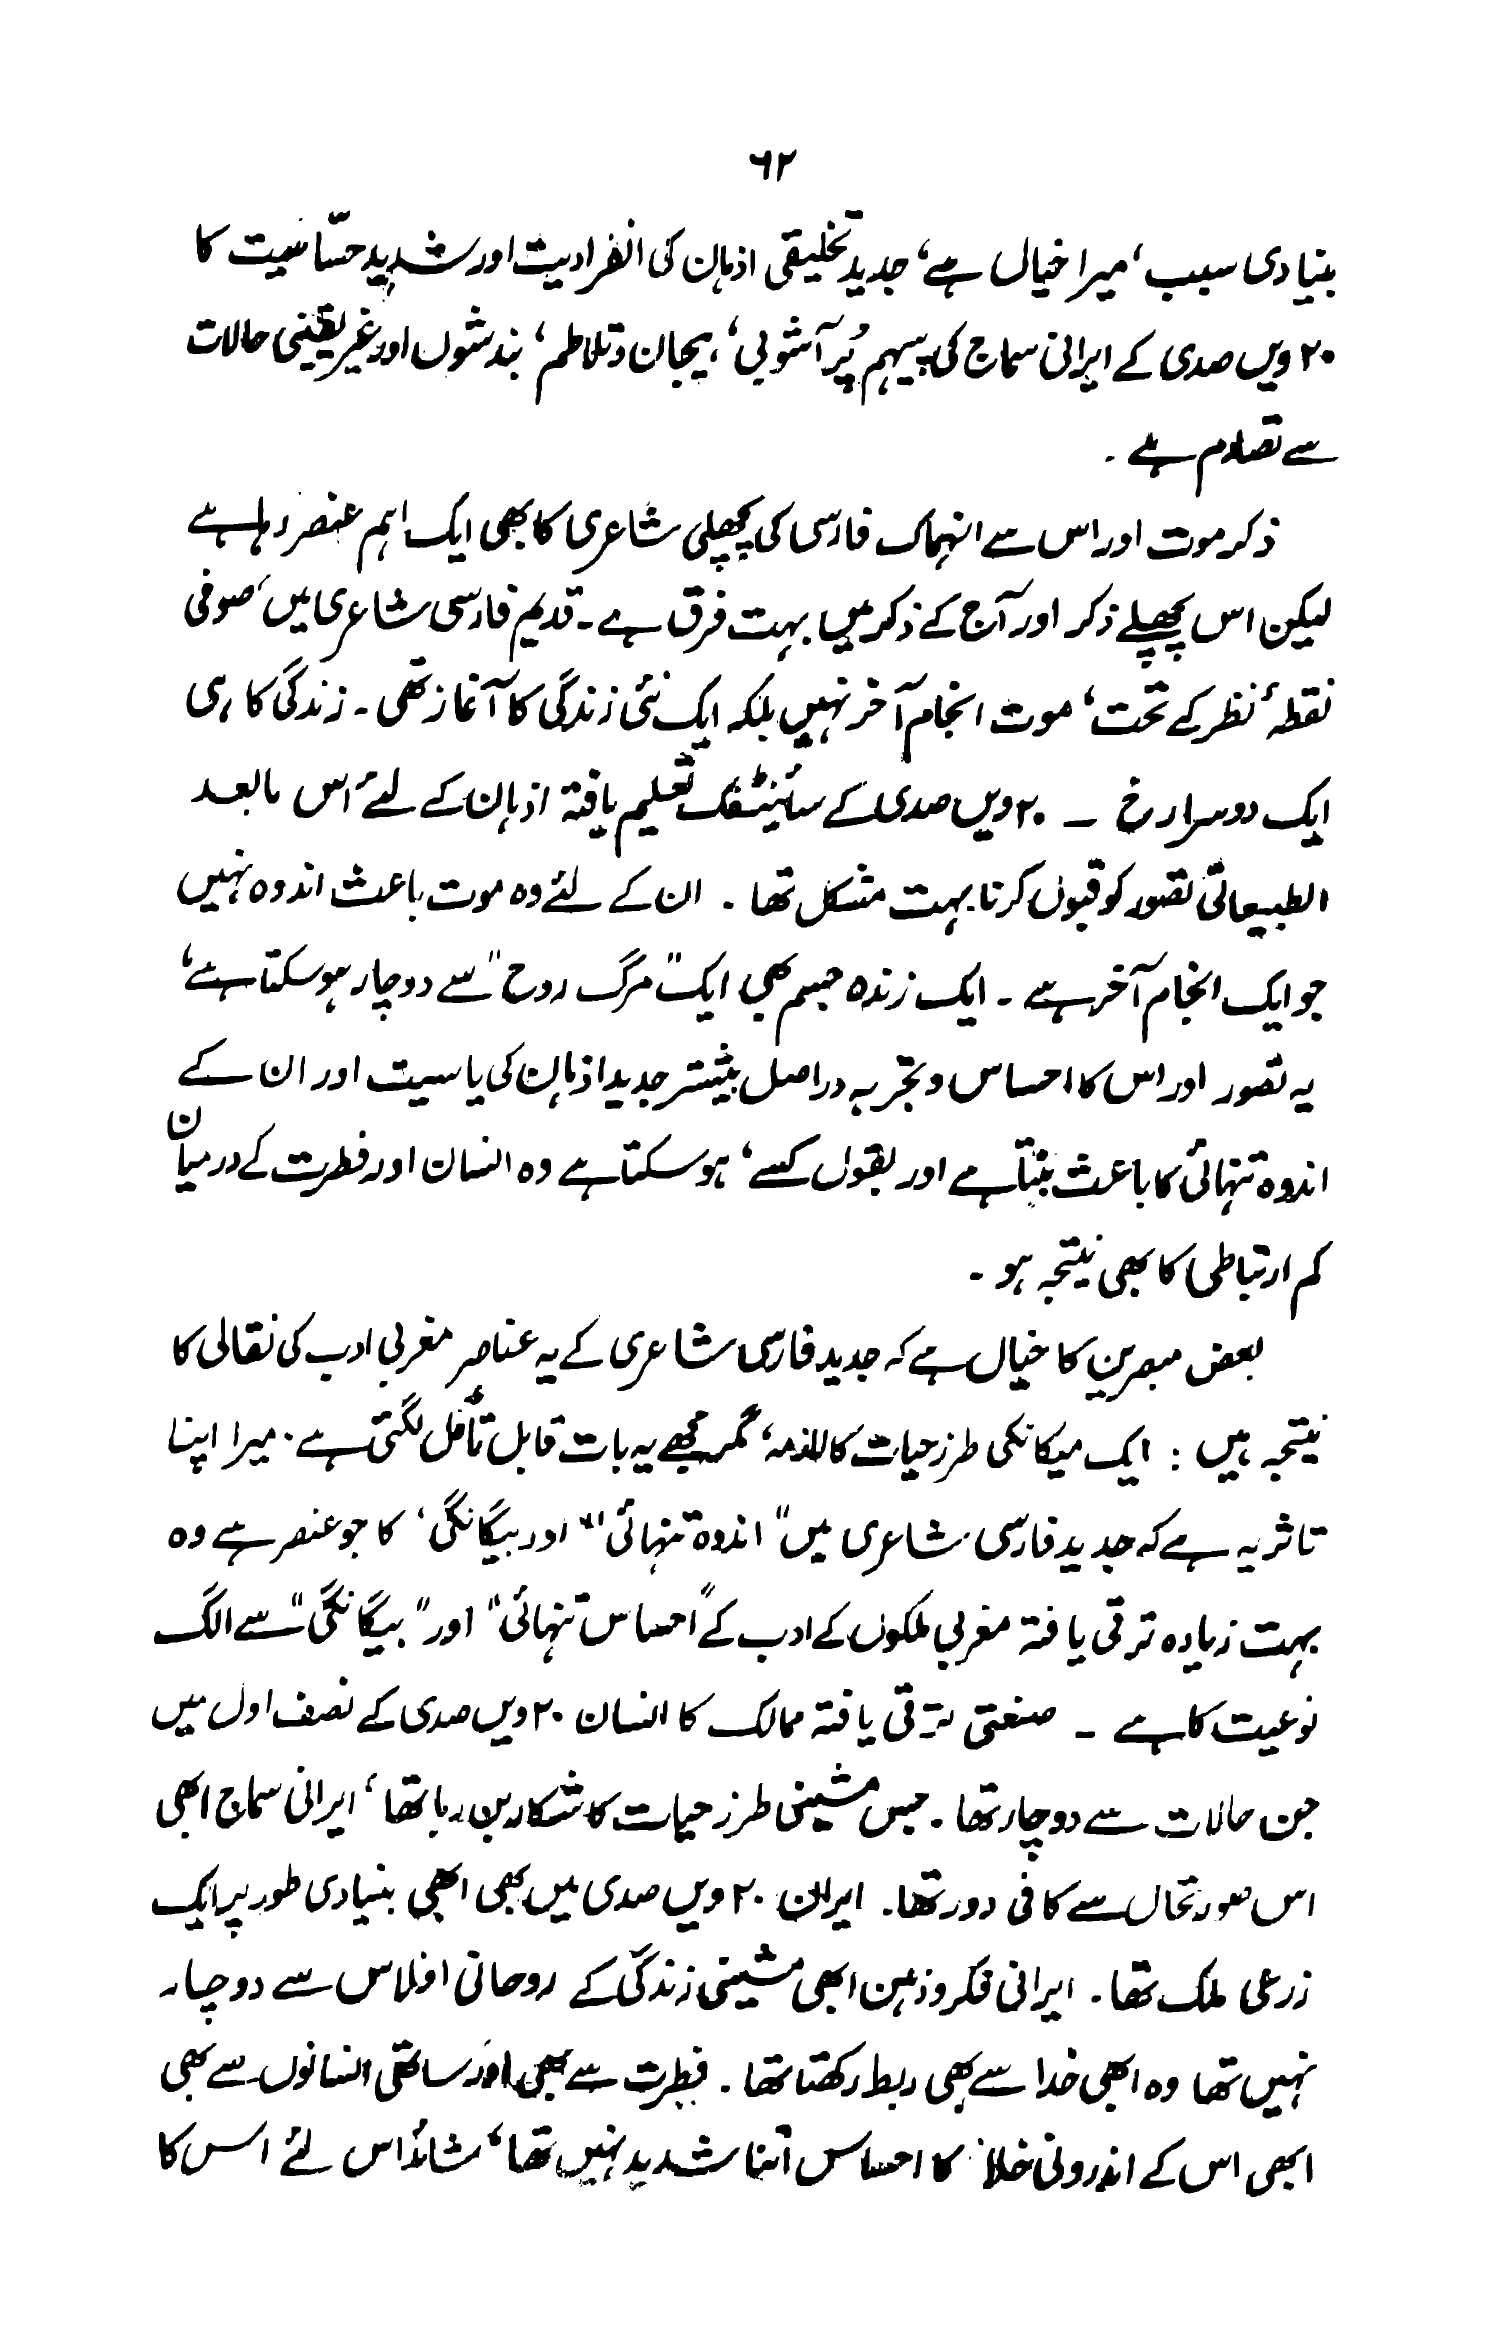 ۶۲
بنیادی سبب، میرا خیال ہے، جدید تخلیقی اذہان کی انفرادیت اور شدید حسّاسیت کا
۲۰ ویں صدی کے ایرانی سماج کی پیہم پُر آشوبی، ہیجان و تلاطم، بندشوں اور غیر یقینی حالات
سے تصادم ہے ۔
ذکر موت اور اس سے انہماک فارسی کی پچھلی شاعری کا بھی ایک اہم عنصر رہا ہے
لیکن اس پچھلے ذکر اور آج کے ذکر میں بہت فرق ہے ۔ قدیم فارسی شاعری میں، صوفی
نقطۂ نظر کے تحت، موت انجام آخر نہیں بلکہ ایک نئی زندگی کا آغاز تھی ۔ زندگی کا ہی
ایک دوسرا رخ ۔ ۲۰ ویں صدی کے سائینٹفک تعلیم یافتہ اذہان کے لئے اس مابعد
الطبیعاتی تصور کو قبول کرنا بہت مشکل تھا ۔ ان کے لئے وہ موت باعث اندوہ نہیں
جو ایک انجام آخر ہے ۔ ایک زندہ جسم بھی ایک "مرگ روح" سے دوچار ہو سکتا ہے،
یہ تصور اور اس کا احساس و تجربہ دراصل بیشتر جدید اذہان کی یاسیت اور ان کے
اندوہ تنہائی کا باعث بنتا ہے اور بقول کسے، ہو سکتا ہے وہ انسان اور فطرت کے درمیان
کم ارتباطی کا بھی نتیجہ ہو ۔
بعض مبصرین کا خیال ہے کہ جدید فارسی شاعری کے یہ عناصر مغربی ادب کی نقالی کا
نتیجہ ہیں : ایک میکانکی طرز حیات کا لازمہ، مگر مجھے یہ بات قابل تأمل لگتی ہے ۔ میرا اپنا
تاثر یہ ہے کہ جدید فارسی شاعری میں "اندوہ تنہائی" اور بیگانگی، کا جو عنصر ہے وہ
بہت زیادہ ترقی یافتہ مغربی ملکوں کے ادب کے "احساس تنہائی" اور "بیگانگی" سے الگ
نوعیت کا ہے ۔ صنعتی ترقی یافتہ ممالک کا انسان ۲۰ ویں صدی کے نصف اول میں
جن حالات سے دوچار تھا ۔ جس مشینی طرز حیات کا شکار بن رہا تھا، ایرانی سماج ابھی
اس صورتحال سے کافی دور تھا ۔ ایران ۲۰ ویں صدی میں بھی ابھی بنیادی طور پر ایک
زرعی ملک تھا ۔ ایرانی فکر و ذہن ابھی مشینی زندگی کے روحانی افلاس سے دوچار
نہیں تھا وہ ابھی خدا سے بھی ربط رکھتا تھا ۔ فطرت سے بھی اور ساتھی انسانوں سے بھی
ابھی اس کے اندرونی خلاء کا احساس اتنا شدید نہیں تھا، شائد اس لئے اس کا